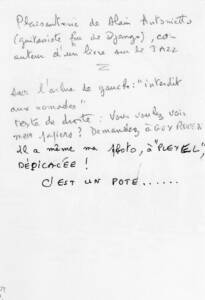 Plaisanterie de Alain Antonietto
(guitariste fan de Django), con
auteur d'un livre sur le JAZZ
Z
sur l'arbre de gauche : "interdit
aux nomades"
texte de droite : Vous voulez voir
mes papiers ? Demandez à GUY
Il a même ma photo, à "PLEYEL",
DÉDICACÉE !
C'EST UN POTE......